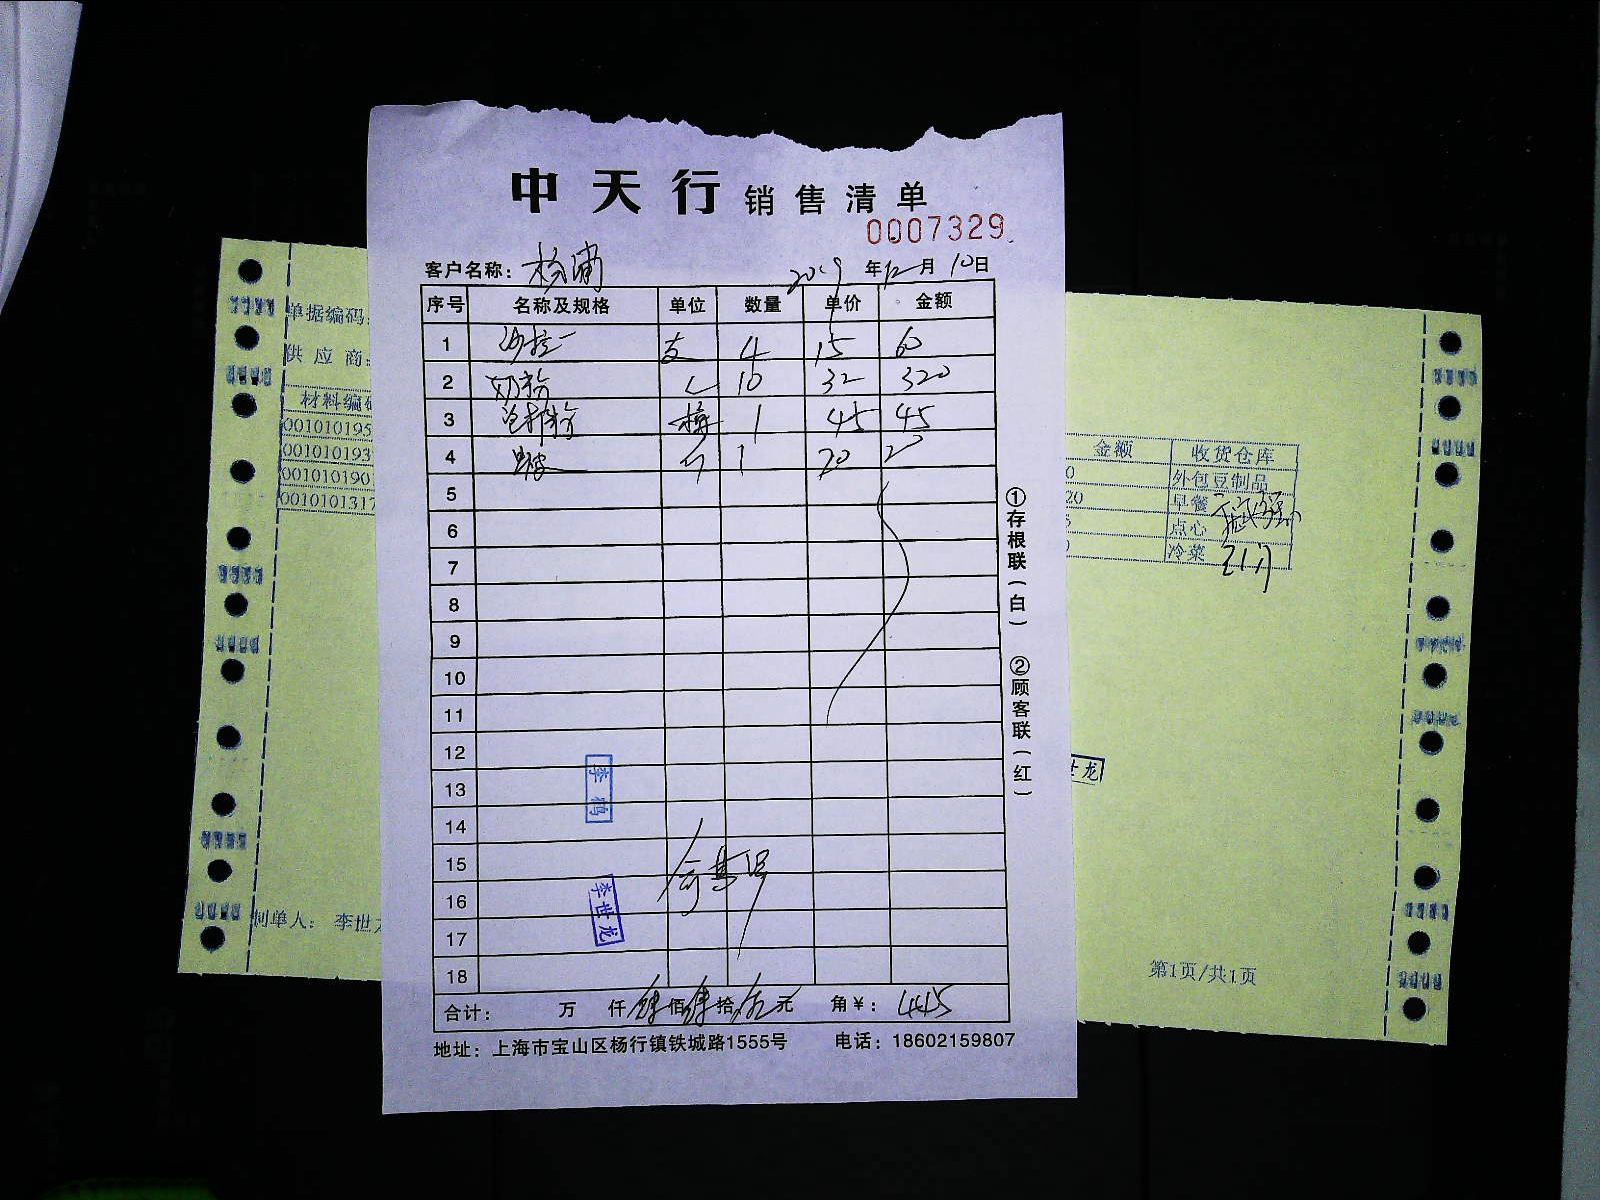 中天行 销售清单
0007329
客户名称： 杨浦 2019年12月10日
序号 名称及规格 单位 数量 单价 金额
1 沙拉 支 4 15 60
2 奶粉 10 32 320
3 1 45 45
4 1 20 20
5
6
7
8
9
10
11
12
13
14
15
16
17
18
合计： 万 仟 肆佰肆拾伍元 角￥： 445
地址：上海市宝山区杨行镇铁城路1555号 电话：18602159807
①存根联（白） ②顾客联（红）
李鹤
李世龙
单据编码：
供应商：
材料编
001010195
001010193
001010190
001010131
制单人： 李世
金额 收货仓库
0 外包豆制品
20 早餐
5 点心
0 冷菜
世龙
第1页/共1页